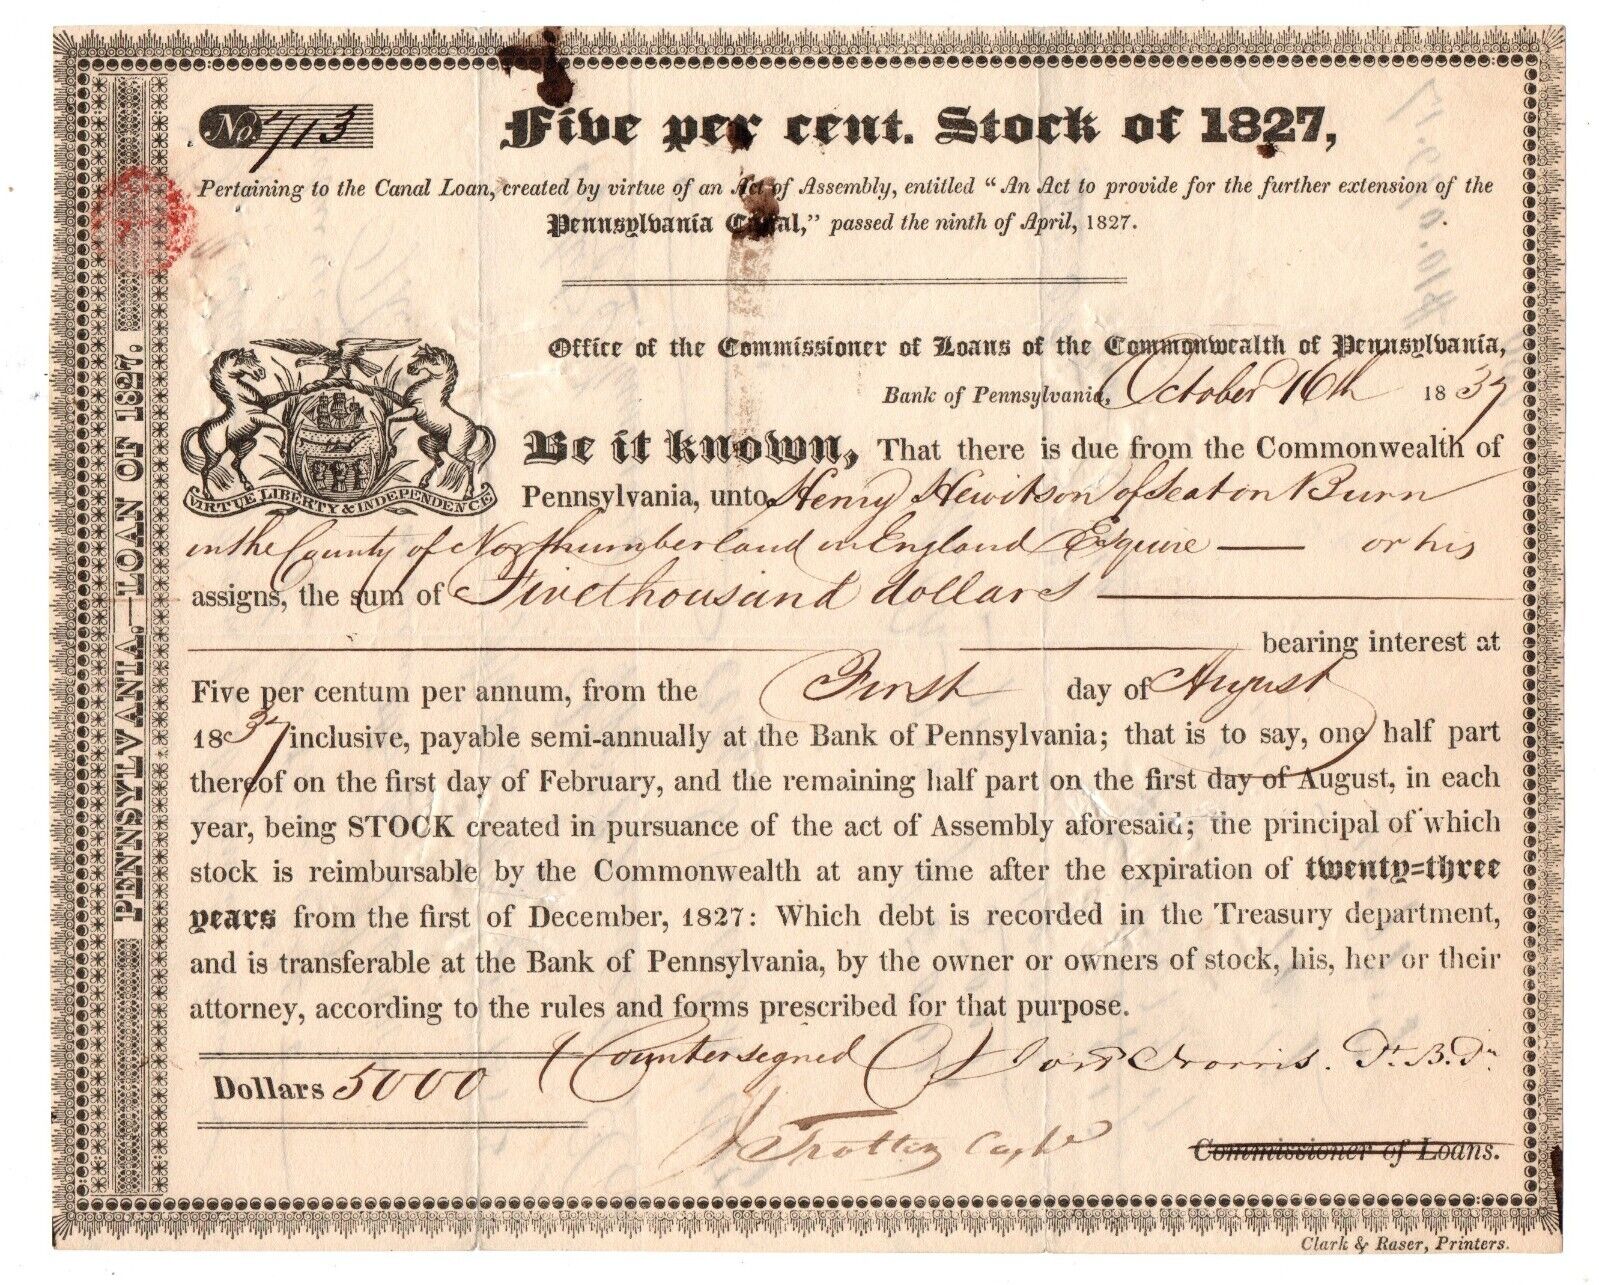 No. 713
Five per cent. Stock of 1827,
Pertaining to the Canal Loan, created by virtue of an Act of Assembly, entitled “An Act to provide for the further extension of the
Pennsylvania Canal,” passed the ninth of April, 1827.
Office of the Commissioner of Loans of the Commonwealth of Pennsylvania,
Bank of Pennsylvania, October 16th 1837
VIRTUE LIBERTY & INDEPENDENCE
Be it known, That there is due from the Commonwealth of
Pennsylvania, unto Henry Hewitson of Seaton Burn
in the County of Northumberland in England Esquire — or his
assigns, the sum of Five thousand dollars
bearing interest at
Five per centum per annum, from the First day of August
1837 inclusive, payable semi-annually at the Bank of Pennsylvania; that is to say, one half part
thereof on the first day of February, and the remaining half part on the first day of August, in each
year, being STOCK created in pursuance of the act of Assembly aforesaid; the principal of which
stock is reimbursable by the Commonwealth at any time after the expiration of twenty-three
years from the first of December, 1827: Which debt is recorded in the Treasury department,
and is transferable at the Bank of Pennsylvania, by the owner or owners of stock, his, her or their
attorney, according to the rules and forms prescribed for that purpose.
Dollars 5000
Countersigned
Norris.
J Trotter Cash
Commissioner of Loans.
Clark & Raser, Printers.
PENNSYLVANIA.—LOAN OF 1827.